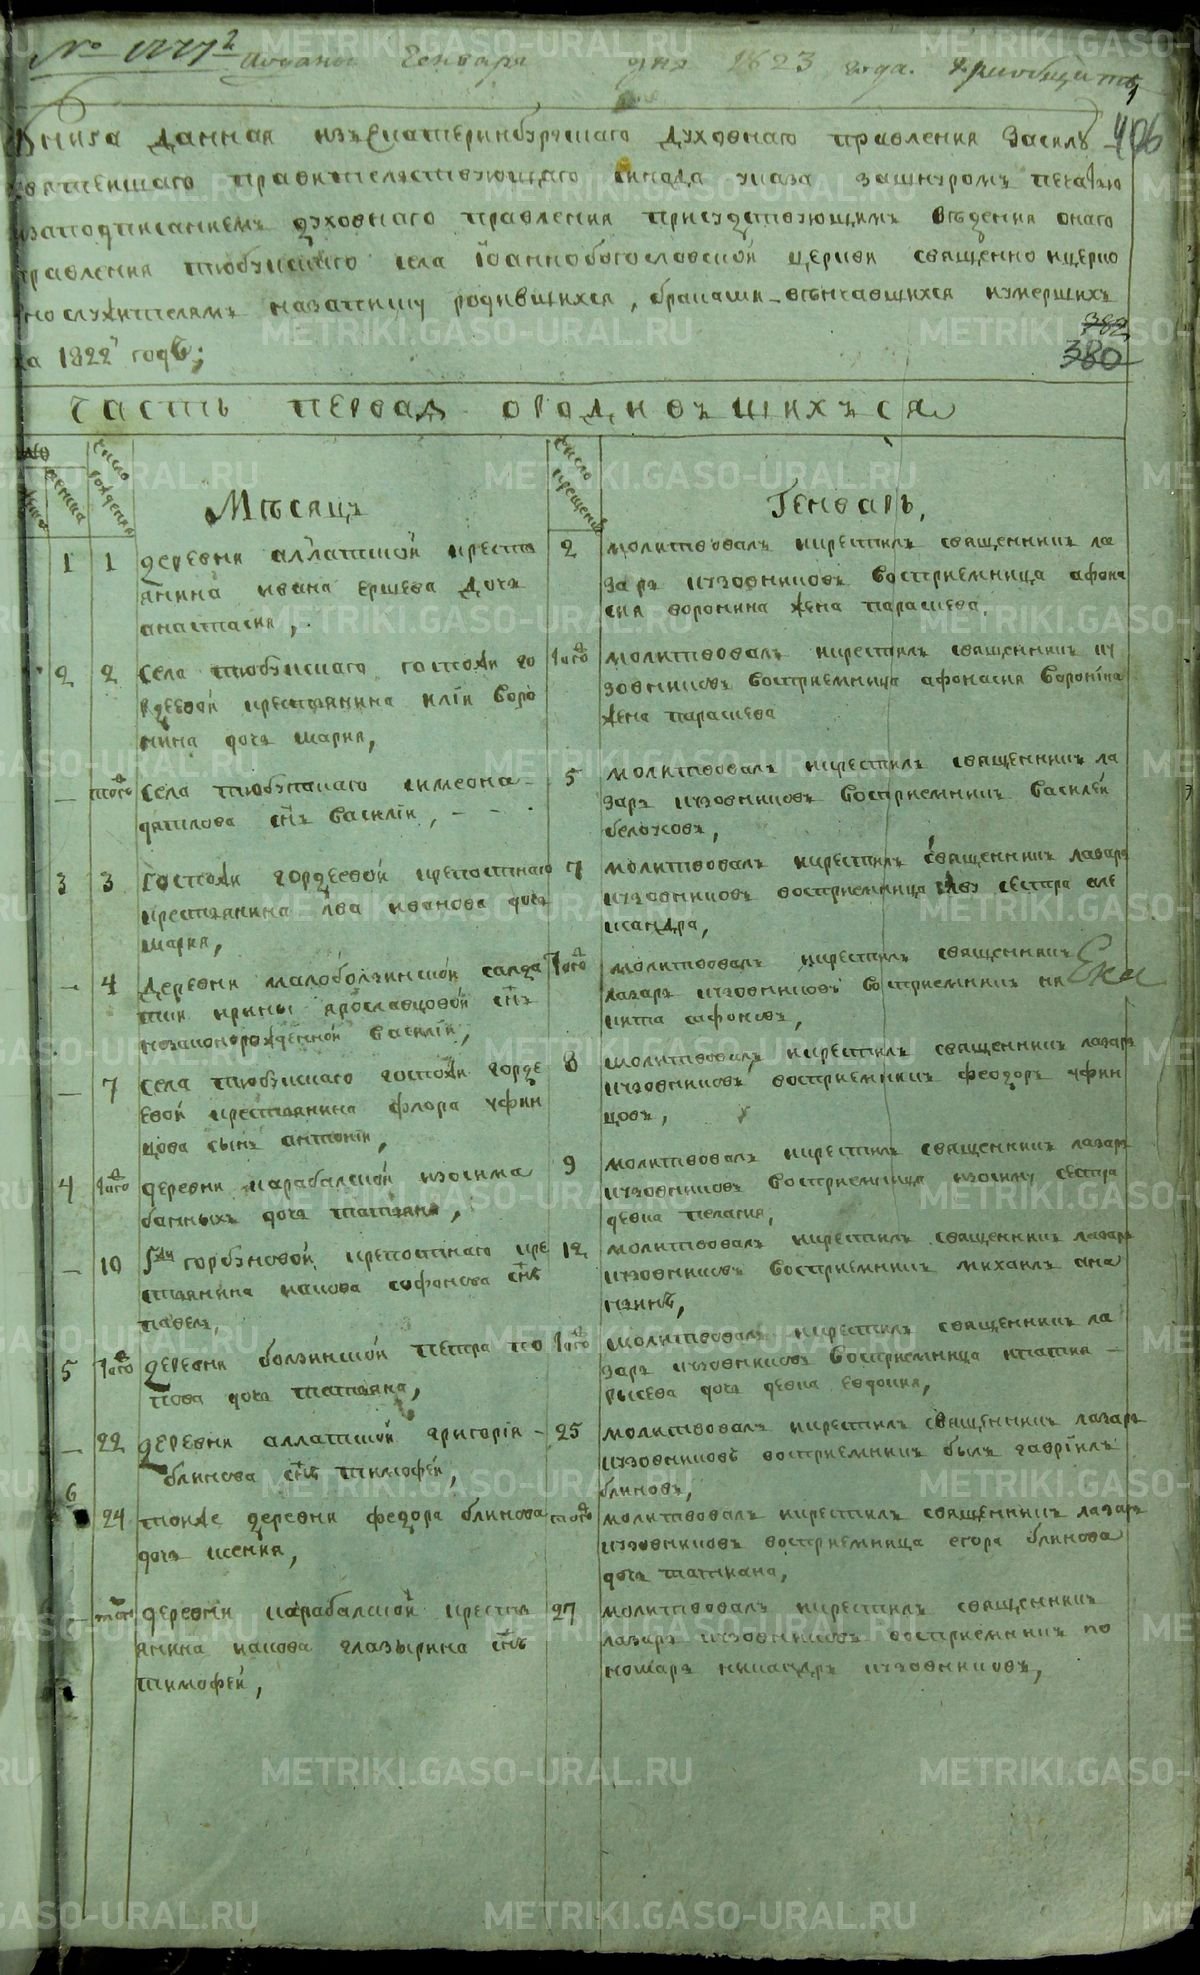 № 1777
Поданы Генваря дня 1823 года. Приобщить
406
Книга данная изъ Екатеринбургскаго Духовнаго правления Всилу
святейшаго правительствующаго синода указа зашнуромъ печатью
изаподписаниемъ духовнаго правления присудствующимъ ведения онаго
правления тюбукскаго села Iоаннобогословской церкви священно ицерко
но служителямъ назаписку родившихся, браками вѣнчавшихся иумершихъ
382
на 1822 годъ;
380
Часть первая ородившихъся
число рождения
число крещения
Мѣсяцъ
Генварь,
1 1 деревни аллатской кресть
янина ивана ершева дочь
анастасия,
2 молитвовалъ икрестилъ священникъ ла
заръ изовниковъ восприемница афона
сия воронина жена парасцева,
2 2 села тюбукскаго госпожи го
рдеевой крестьянина илiи воро
нина дочь мария,
того молитвовалъ икрестилъ священникъ
восприемница афонасия воронiна
жена парасцева
того села тюбукскаго симеона
дятлова снъ василiи,
5 молитвовалъ икрестилъ священникъ ла
заръ восприемникъ василей
белоусовъ,
3 3 госпожи гордеевой крепостнаго
крестьянина лва иванова дочь
мария,
7 молитвовалъ икрестилъ священникъ лазаръ
восприемница лву сестра але
ксандра,
4 деревни малоболзикской салда
тки ирины ярославцовой снъ
незаконорожденной василiи,
того молитвовалъ икрестилъ священникъ
лазаръ восприемникъ ни
кита сафоновъ,
Ека
7 села тюбукскаго госпожи горде
евой крестьянина флора уфин
цова сынъ антонiи,
8 молитвовалъ икрестилъ священникъ лазаръ
восприемникъ феодоръ уфин
цовъ,
4 того деревни карабалской изосима
банныхъ дочь татьяна,
9 молитвовалъ икрестилъ священникъ лазаръ
восприемница изосиму сестра
девка пелагия,
10 гжи горбуновой крепостнаго кре
стьянина иакова софонова снъ
павелъ,
12 молитвовалъ икрестилъ священникъ лазаръ
восприемникъ михаилъ ана
ньинъ,
5 того деревни болзикской петра по
пова дочь татьяна,
того молитвовалъ икрестилъ священникъ ла
заръ восприемница игнатия
рысева дочь девка евдокия,
22 деревни аллатской григорiя
блинова снъ тимофей,
25 молитвовалъ икрестилъ священникъ лазаръ
восприемникъ былъ гаврiилъ
блиновъ,
6 24 тоиже деревни федора блинова
дочь ксения,
того молитвовалъ икрестилъ священникъ лазаръ
восприемница егора блинова
дочь татиана,
того деревни карабалской кресть
янина иакова глазырина снъ
тимофей,
27 молитвовалъ икрестилъ священникъ
лазаръ восприемникъ по
номаръ никандръ